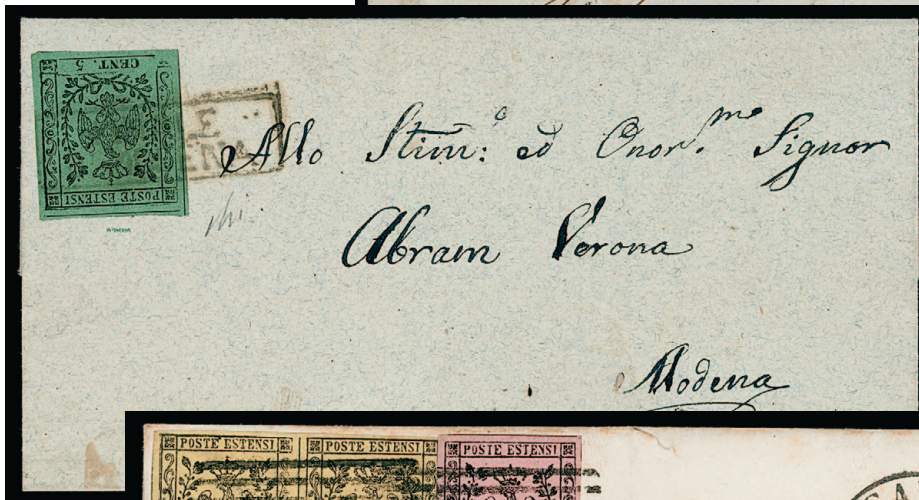 CENT. 5
POSTE ESTENSI
Allo Stim:o ed Onor.mo Signor
Abram Verona
Modena
POSTE ESTENSI
POSTE ESTENSI
POSTE ESTENSI